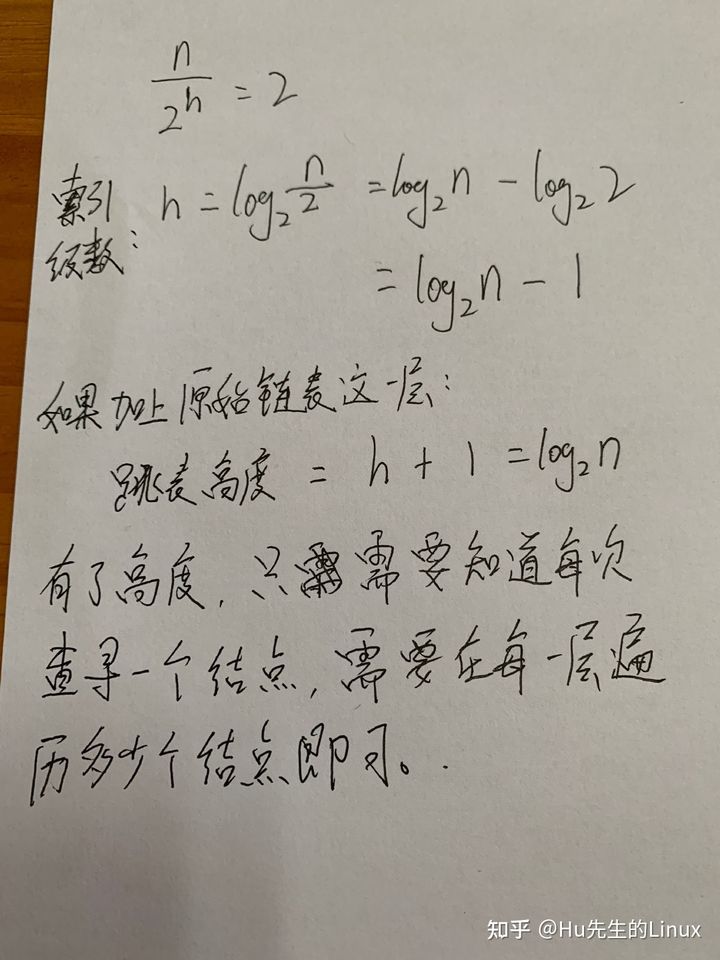 n/2^h = 2
索引级数: h = log₂ n/2 = log₂n - log₂2
= log₂n - 1
如果加上原始链表这一层:
跳表高度 = h + 1 = log₂n
有了高度, 只需要知道每次
查寻一个结点, 需要在每一层遍
历多少个结点即可。
知乎 @Hu先生的Linux